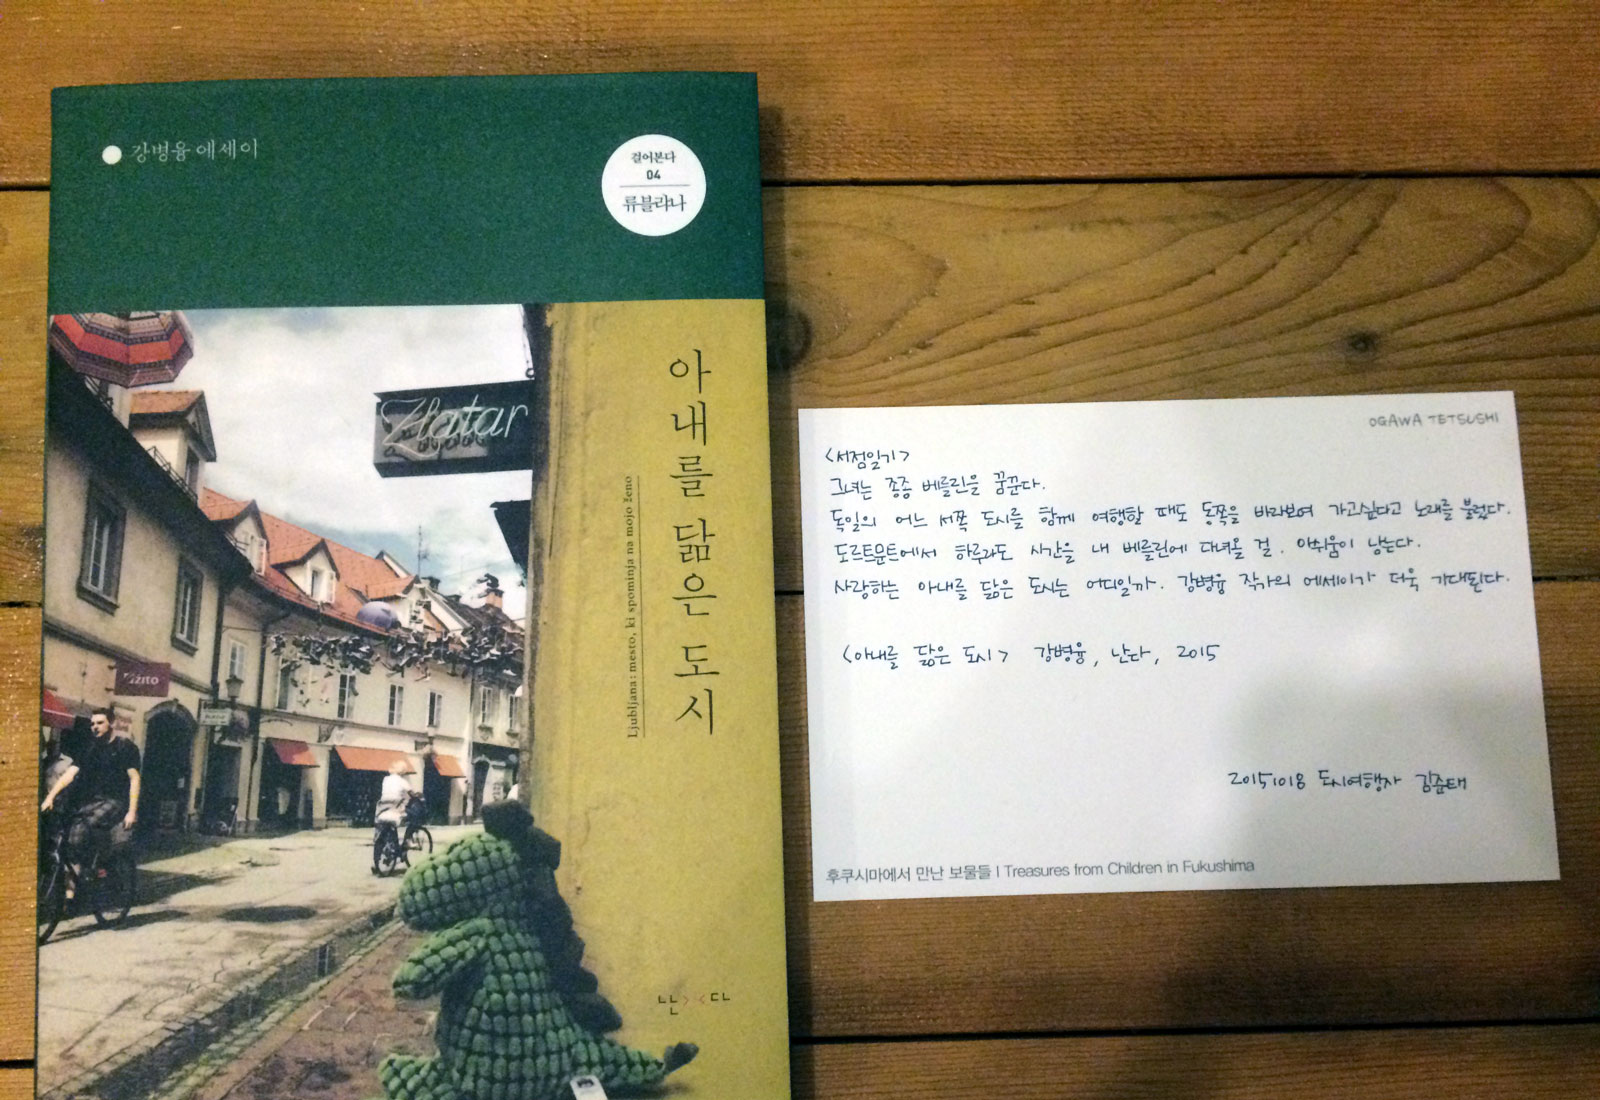 강병융 에세이
걸어본다
04
류블랴나
아내를 닮은 도시
Ljubljana: mesto, ki spominja na mojo ženo
Zlatar
žito
난다
OGAWA TETSUSHI
<서점일기>
그녀는 종종 베를린을 꿈꾼다.
독일의 어느 서쪽 도시를 함께 여행할 때도 동쪽을 바라보며 가고싶다고 노래를 불렀다.
도르트문트에서 하루라도 시간을 내 베를린에 다녀올 걸. 아쉬움이 남는다.
사랑하는 아내를 닮은 도시는 어디일까. 강병융 작가의 에세이가 더욱 기대된다.
<아내를 닮은 도시> 강병융, 난다, 2015
20151018 도시여행자 김준태
후쿠시마에서 만난 보물들 I Treasures from Children in Fukushima